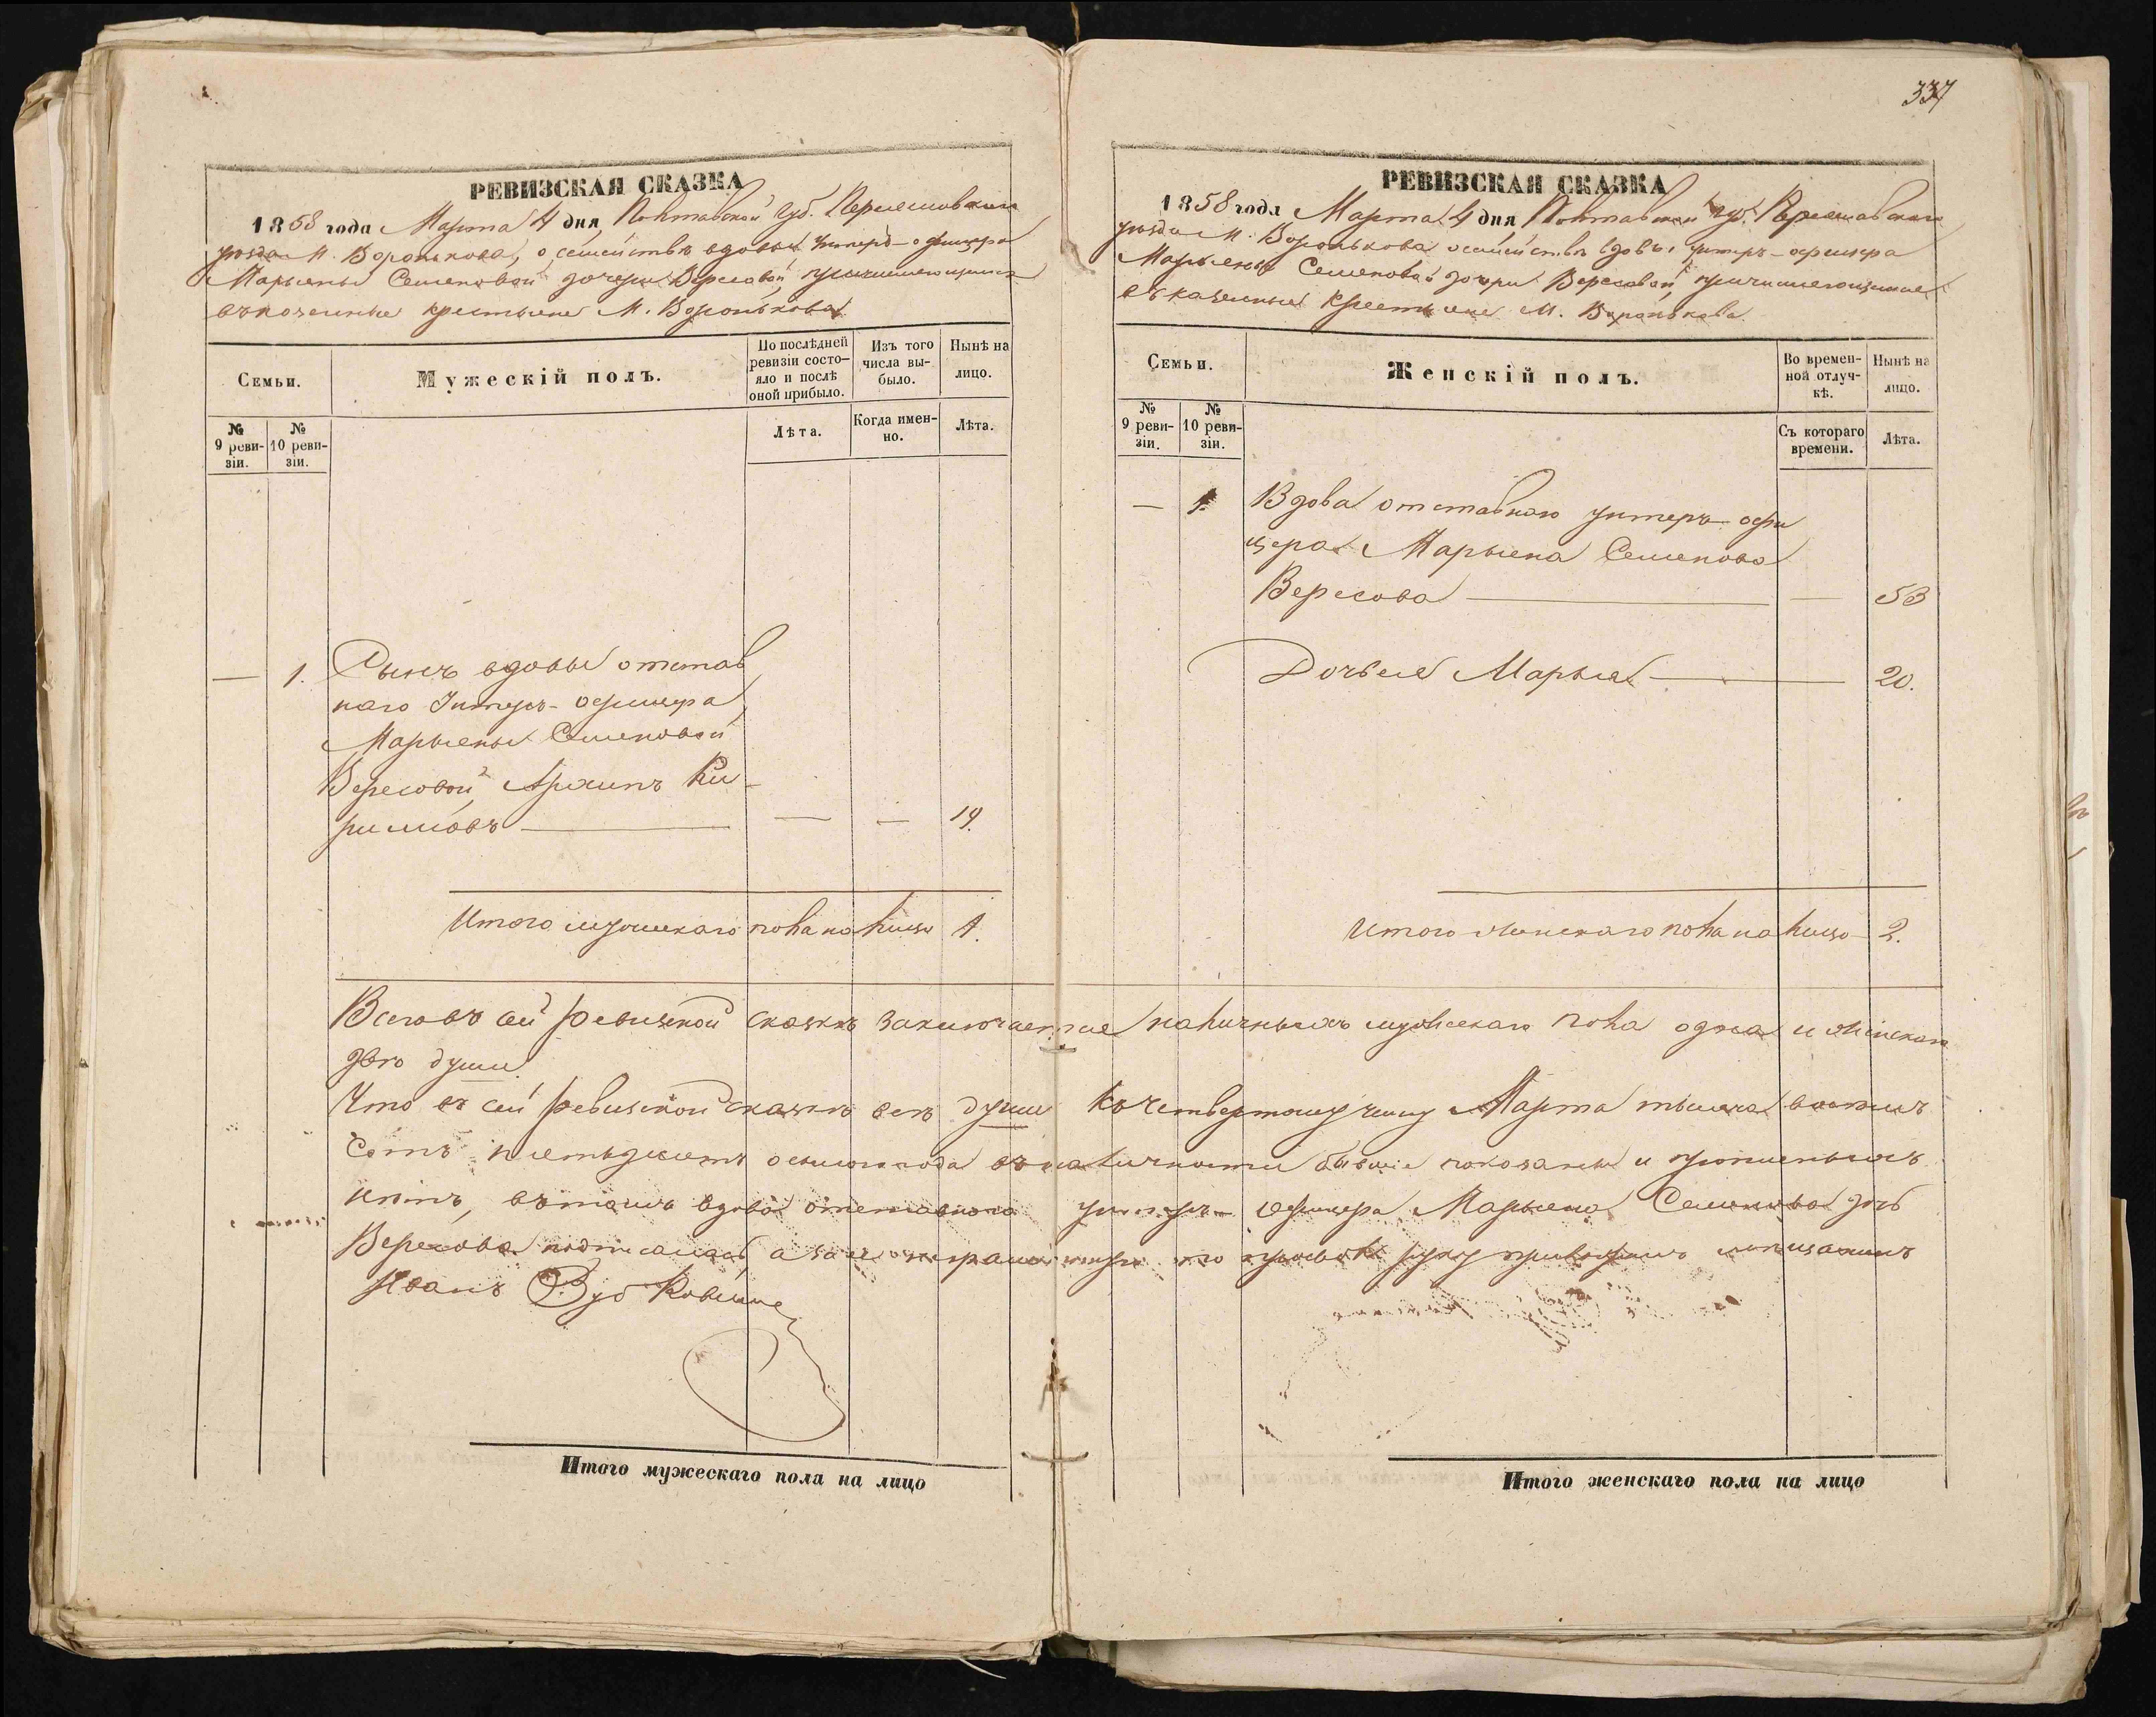 337
РЕВИЗСКАЯ СКАЗКА
1858 года Марта 4 дня Полтавской губ. Переяславскаго
уѣзда М. Воронькова, о семействѣ вдовы унтеръ-офицера
Марьяны Семеновой дочери Вересовой, причисляющимся
въ казенные крестьяне М. Воронькова
Семьи.
Мужескій полъ.
По послѣдней ревизіи состояло и послѣ оной прибыло.
Изъ того числа выбыло.
Нынѣ на лицо.
№ 9 ревизіи.
№ 10 ревизіи.
Лѣта.
Когда именно.
Лѣта.
— 1. Сынъ вдовы отстав
наго Унтеръ-офицера
Марьяны Семеновой
Вересовой Архипъ Ки-
риловъ — — — 19.
Итого мужескаго пола на лицо 1.
РЕВИЗСКАЯ СКАЗКА
1858 года Марта 4 дня Полтавской губ. Переяславскаго
уѣзда М. Воронькова о семействѣ вдовы унтеръ-офицера
Марьяны Семеновой дочери Вересовой, причисляющимся
въ казенные крестьяне М. Воронькова.
Семьи.
Женскій полъ.
Во временной отлучкѣ.
Нынѣ на лицо.
№ 9 ревизіи.
№ 10 ревизіи.
Съ котораго времени.
Лѣта.
— 1. Вдова отставнаго унтеръ-офи
цера Марьяна Семенова
Вересова — — 53
Дочь ея Марья — 20.
Итого женскаго пола на лицо 2.
Всего въ сей ревизской сказкѣ заключается наличныхъ мужескаго пола одна и женскаго
двѣ души.
Что въ сей ревизской сказкѣ всѣ души къ четвертому числу Марта тысяча восемь
сотъ пятьдесятъ осьмого года въ наличности бывшіе показаны и пропущенныхъ
нѣтъ, въ томъ вдова отставнаго унтеръ-офицера Марьяна Семенова дочь
Вересова подписалась, а за ея неграмотную по просьбѣ руку приложилъ
Иванъ
Итого мужескаго пола на лицо
Итого женскаго пола на лицо